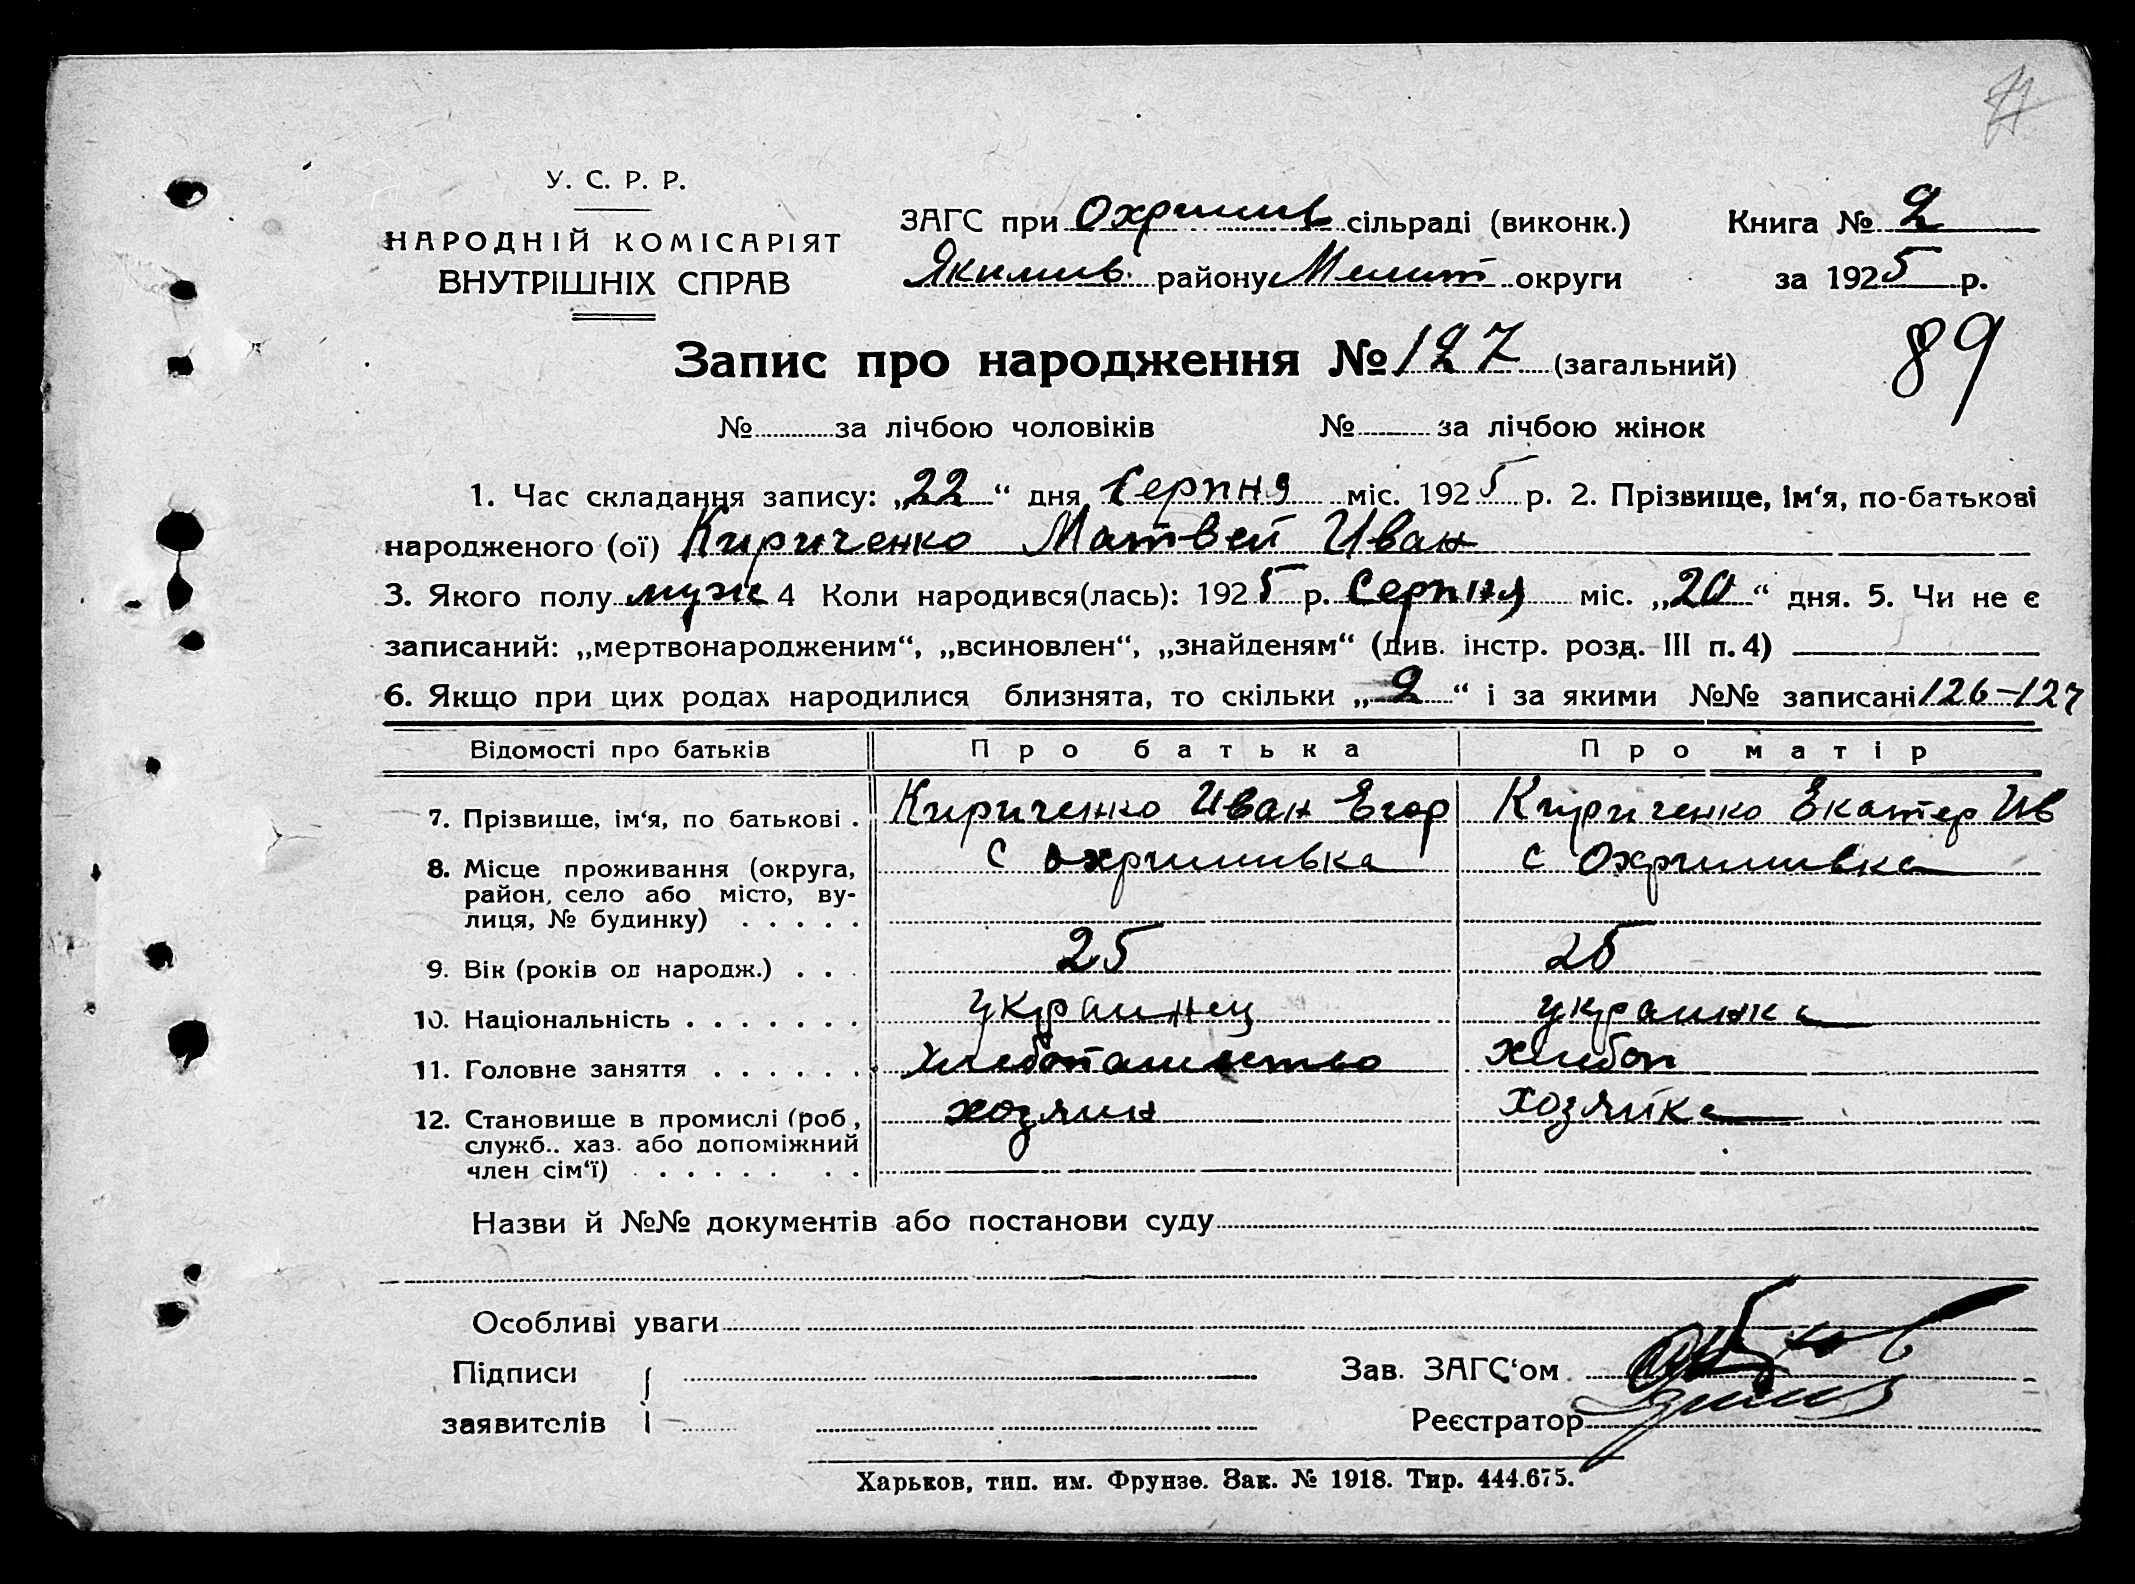 У. С. Р. Р.
НАРОДНІЙ КОМІСАРІЯТ
ВНУТРІШНІХ СПРАВ
ЗАГС при Охримив сільраді (виконк.)
Книга № 2
Якимив району Мелит округи
за 1925 р.
Запис про народження № 127 (загальний)
89
№ за лічбою чоловіків № за лічбою жінок
1. Час складання запису: „22“ дня Серпня міс. 1925 р. 2. Прізвище, ім‘я, по-батькові
народженого (ої) Кириченко Матвей Иван
3. Якого полу муж 4 Коли народився(лась): 1925 р. Серпня міс. „20“ дня. 5. Чи не є
записаний: „мертвонародженим“, „всиновлен“, „знайденям“ (див. інстр. розд. III п. 4)
6. Якщо при цих родах народилися близнята, то скільки „2“ і за якими №№ записані 126-127
Відомості про батьків Про батька Про матір
7. Прізвище, ім‘я, по батькові . Кириченко Иван Егор Кириченко Екатер Ив
8. Місце проживання (округа, с Охримивка с Охримивка
район, село або місто, ву-
лиця, № будинку) . . . . .
9. Вік (років од народж.) . . . 25 25
10. Національність . . . . . . . украинец украинка
11. Головне заняття . . . . . . хлебопашество хлебоп
12. Становище в промислі (роб., хозяин хозяйка
служб.. хаз. або допоміжний
член сім‘ї) . . . . . . . .
Назви й №№ документів або постанови суду
Особливі уваги
Підписи
заявителів
Зав. ЗАГС‘ом
Реєстратор
Харьков, тип. им. Фрунзе. Зак. № 1918. Тир. 444.675.